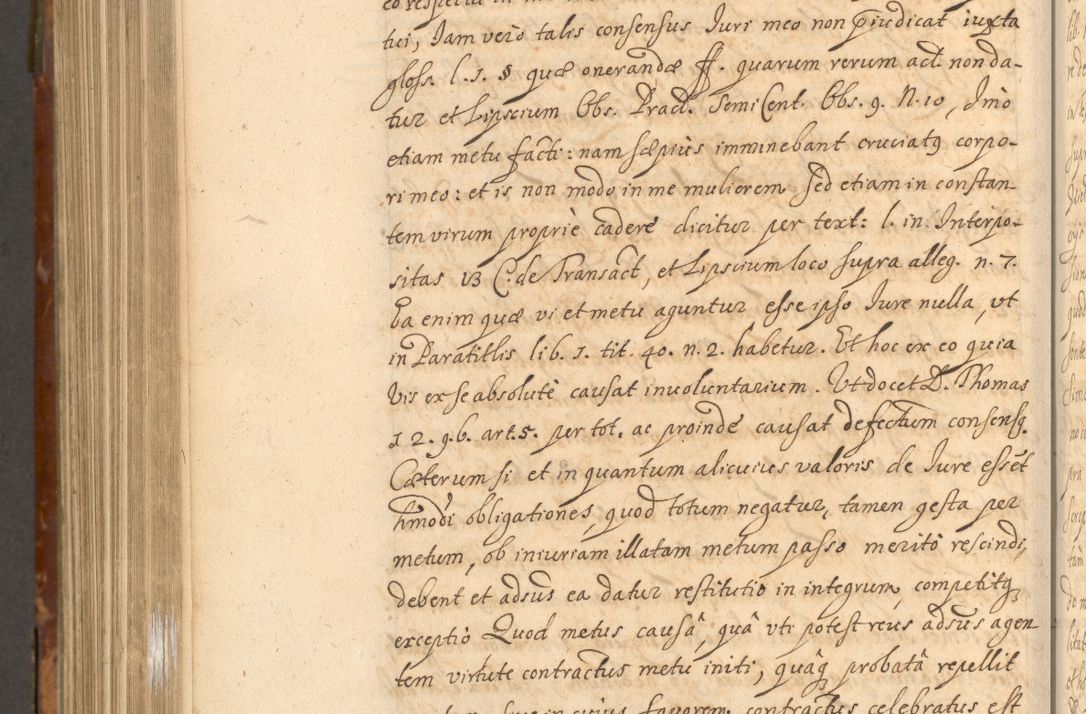 tui, Jam vero talis consensus Juri meo non p̃iudicat iuxta
gloss. l. 1. § quæ onerandæ ff. quarum rerum act non da-
tur et Lipscium Obs. Pract. Semi Cent. Obs. 9. N. 10, Imo
etiam metu facti: nam sæpius imminebant cruciatq corpo-
ri meo: et is non modo in me mulierem sed etiam in constan-
tem virum propriè cadere dicitur per text: l. in Interpo-
sitas 13 C: de Transact, et Lipscium loco supra alleg. n. 7.
Ea enim quæ vi et metu aguntur esse ipso Jure nulla, vt
in Paratitlis lib. 1. tit. 40. n. 2. habetur. Et hoc ex eo quia
Vis ex se absolutè causat inuoluntarium. Vt docet D. Thomas
1 2. q. 6. art. 5. per tot. ac proinde causat defectum consensq.
Cæterum si et in quantum alicuius valoris de Jure essēt
hmōdi obligationes, quod totum negatur, tamen gesta per
metum, ob iniuriam illatam metum passo meritò rescindi,
debent et adsūs ea datur restitutio in integrum, competitq
exceptio Quod metus causâ, quâ vti potest reus adsūs agen
tem virtute contractus metu initi, quâq probatâ repellit
favorem contractus celebratus est